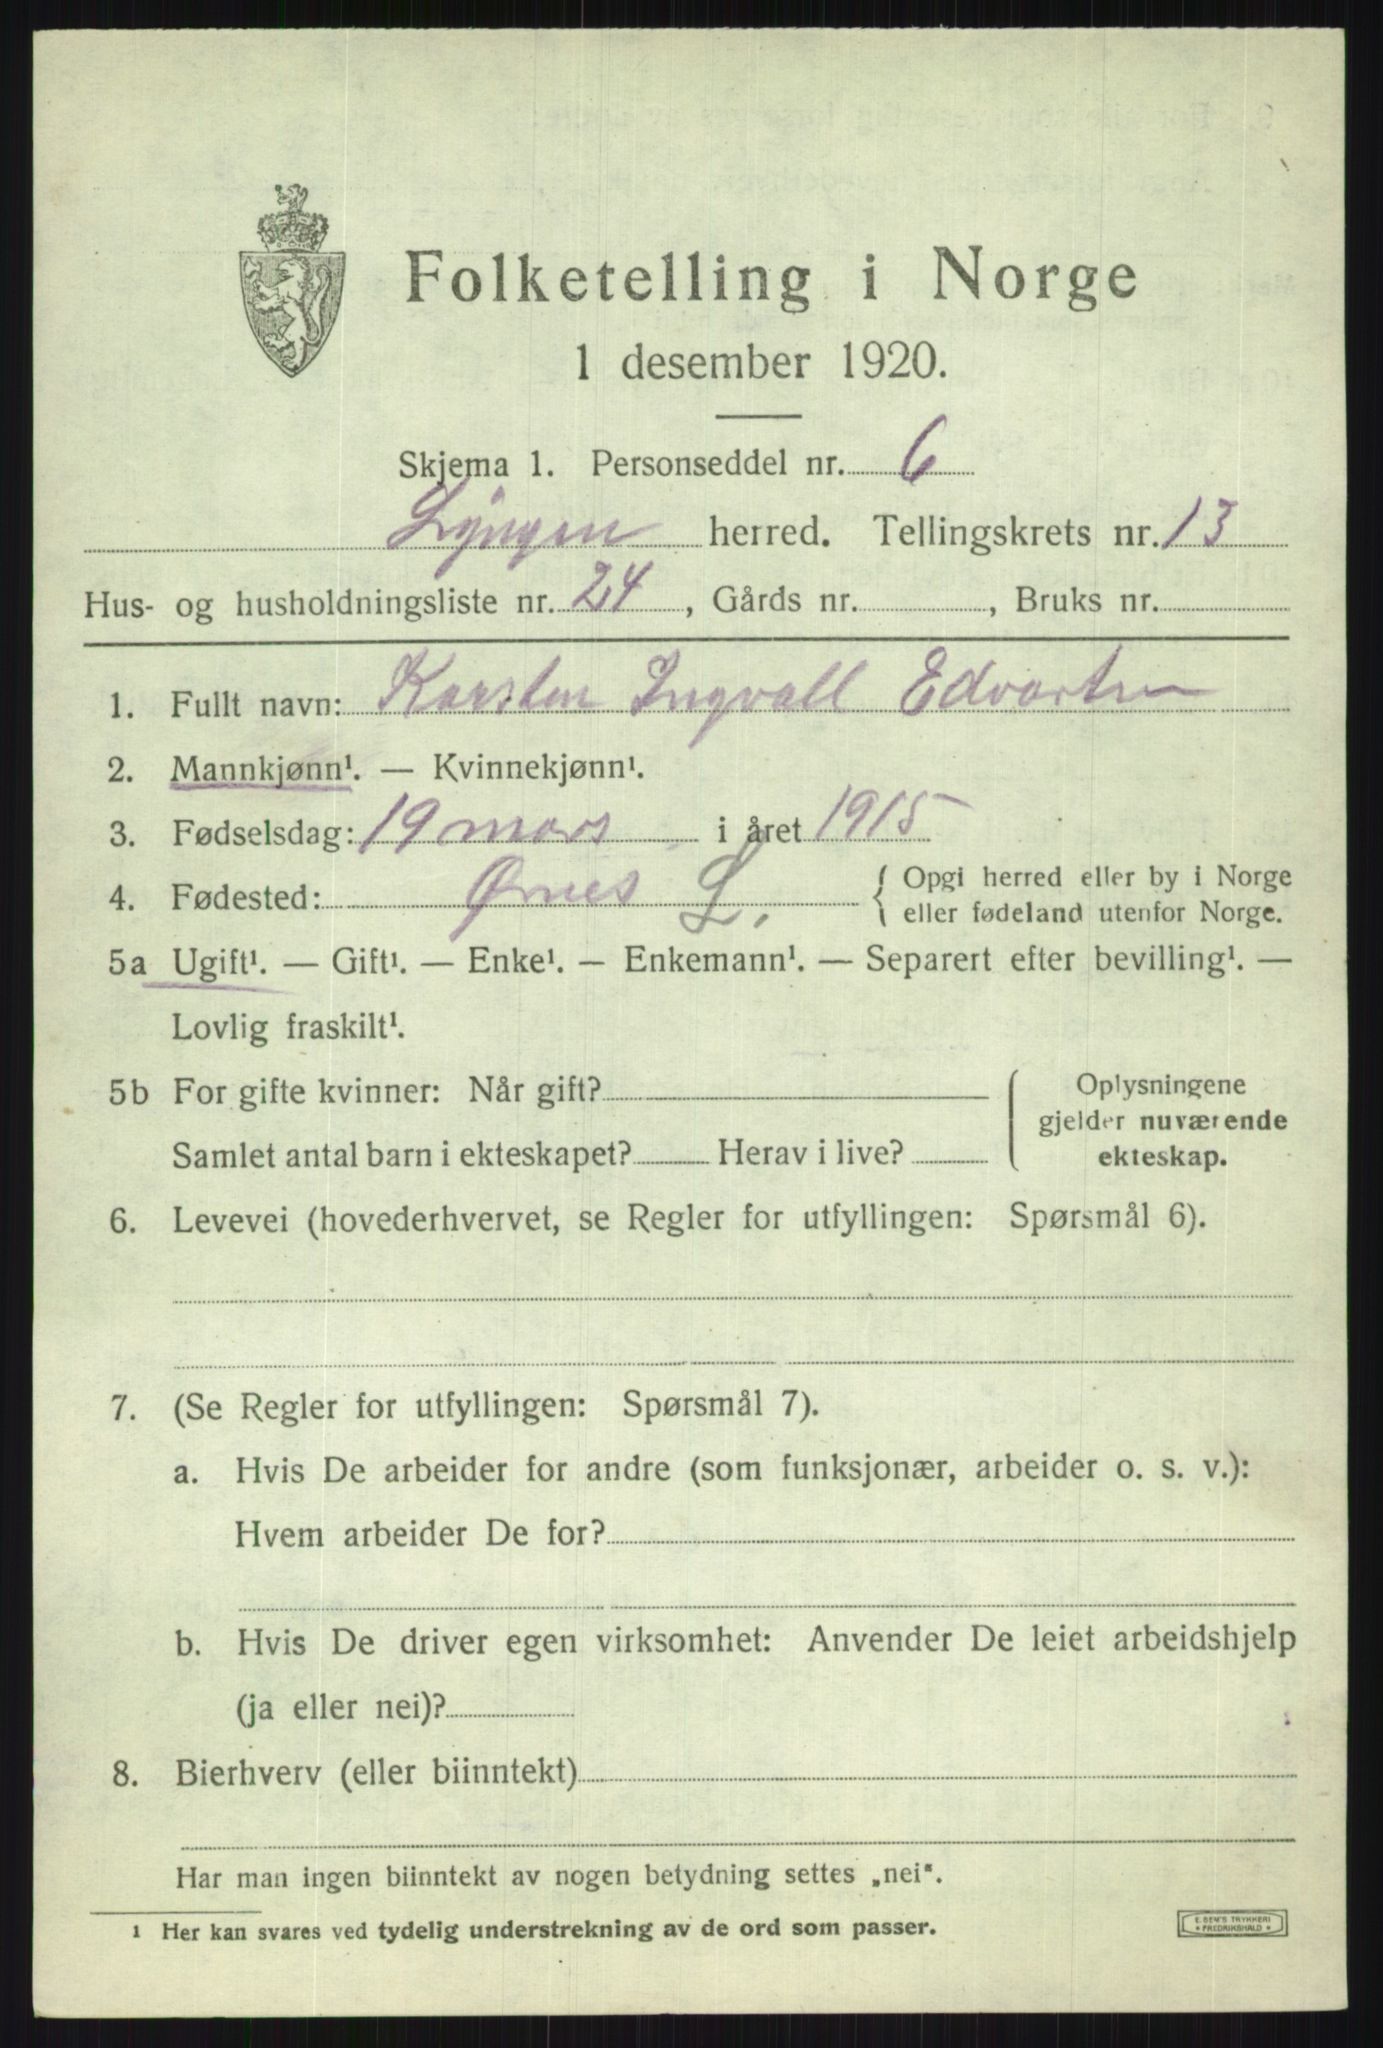 Folketelling i Norge
1 desember 1920.
Skjema 1. Personseddel nr. 6
Lyngen herred. Tellingskrets nr. 13
Hus- og husholdningsliste nr. 24, Gårds nr. , Bruks nr.
1. Fullt navn: Karsten Ingvall Edvartsen
2. Mannkjønn¹. — Kvinnekjønn¹.
3. Fødselsdag: 19 mars i året 1915
4. Fødested: Ørnes L. { Opgi herred eller by i Norge
eller fødeland utenfor Norge.
5a Ugift¹. — Gift¹. — Enke¹. — Enkemann¹. — Separert efter bevilling¹. —
Lovlig fraskilt¹.
5b For gifte kvinner: Når gift?
Samlet antal barn i ekteskapet? Herav i live?
Oplysningene
gjelder nuværende
ekteskap.
6. Levevei (hovederhvervet, se Regler for utfyllingen: Spørsmål 6).
7. (Se Regler for utfyllingen: Spørsmål 7).
a. Hvis De arbeider for andre (som funksjonær, arbeider o. s. v.):
Hvem arbeider De for?
b. Hvis De driver egen virksomhet: Anvender De leiet arbeidshjelp
(ja eller nei)?
8. Bierhverv (eller biinntekt)
Har man ingen biinntekt av nogen betydning settes „nei“.
1 Her kan svares ved tydelig understrekning av de ord som passer.
E. SEM'S TRYKKERI
* FREDRIKSHALD *